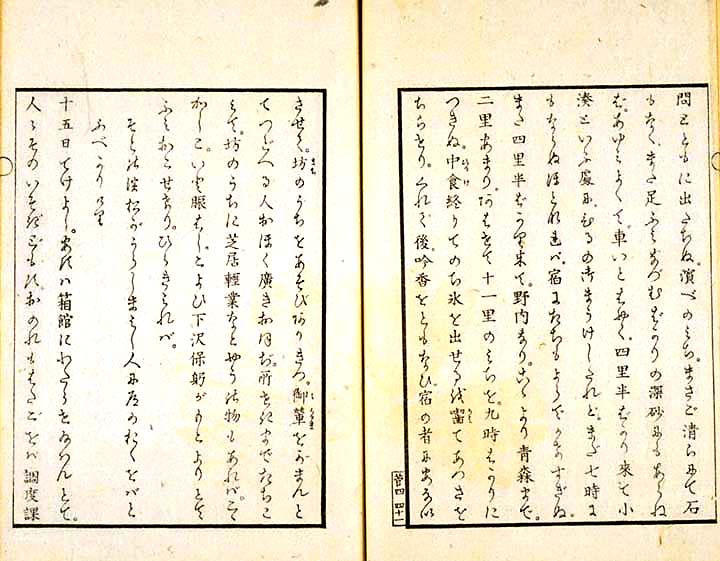 問とともに出たちぬ。濱べのみち。まさご清らにて石
もなく。また足ふみなづむばかりの深砂にもあらね
ば。あゆみよくて。車いとはやく。四里半ばかり來て小
湊といふ處に。ひるの御まうけしたれど。まだ七時に
もならぬほどなれば。宿にたちもよらでかきすぎぬ。
また四里半ばかり來て。野内なり。こゝより青森まで。
二里あまり。あはせて十一里のみちを。九時ばかりに
つきぬ。中食終りてのち氷を出せるを嚙てあつさを
ちらせり。くれて後。吟香をともなひ。宿の者にあない
させて。坊のうちをあそびありきつ。御輦ををがまんと
てつどへる人おほく廣きおほぢ。所せきまでたちこ
みて。坊のうちに芝居輕業などやうの物もあれば。こゝ
かしこ。いと賑はし。こよひ下沢保躬がもとよりとて
ふみおこせたり。ひらきみれば。
そとは濱松がうらしま
ふべかりけり
十五日てけよし。あすは箱館にわたらせ給はんとて。
人々そのいそぎども
調度課
菅四 四十一